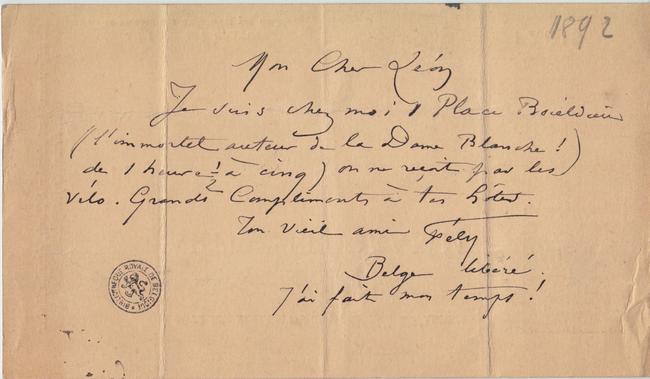 1892
Mon Cher Léon
Je suis chez moi 1 Place Boieldieu
(l'immortel auteur de la Dame Blanche!)
de 1 heure ½ à cinq) on ne reçoit pas les
vélo. Grands Compliments à tes hôtes.
Ton vieil ami Fély
Belge libéré.
J'ai fait mon temps!
BIBLIOTHEQUE ROYALE DE BELGIQUE